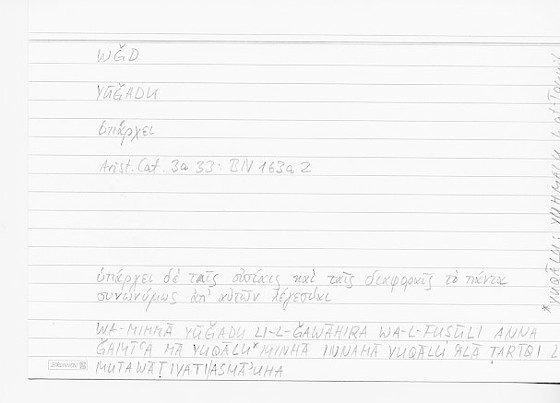 WǦD
YŪǦADU
ὑπάρχει
Arist. Cat. 3a 33 · BN 163a 2
ὑπάρχει δὲ ταῖς οὐσίαις καὶ ταῖς διαφοραῖς τὸ πάντα
συνωνύμως ἀπ' αὐτῶν λέγεσθαι
WA-MIMMĀ YŪǦADU LI-L-ǦAWĀHIRA WA-L-FUṢŪLI ANNA
ǦAMĪʿA MĀ YUQĀLU* MINHĀ INNAMĀ YUQĀLU ʿALĀ ṬARĪQI L
MUTAWĀṬIYATI ASMĀʾUHA
*YUQĀLU: YUḤMALU